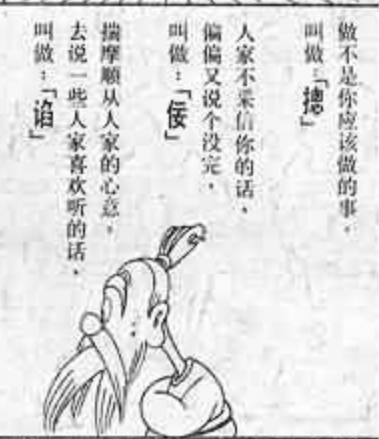 做不是你应该做的事，
叫做：「摁」
人家不采信你的话，
偏偏又说个没完，
叫做：「佞」
揣摩顺从人家的心意，
去说一些人家喜欢听的话，
叫做：「谄」